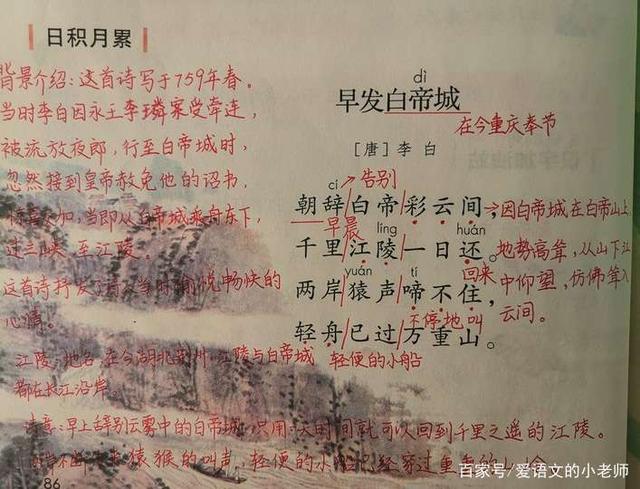 日积月累
背景介绍：这首诗写于759年春。
当时李白因永王李璘案受牵连，
被流放夜郎，行至白帝城时，
忽然接到皇帝赦免他的诏书，
惊喜交加，当即从白帝城乘舟东下，
过三峡 至江陵。
这首诗抒发了诗人当时愉悦畅快的
心情。
dì
早发白帝城
在今重庆奉节
［唐］李白
cí →告别
朝辞/白帝/彩云间，→因白帝城在白帝山上，
早晨 líng huán 地势高耸，从山下江
千里/江陵/一日还。
yuán tí 回来 中仰望，仿佛耸入
两岸/猿声/啼不住， 云间。
不停地叫
轻舟/已过/万重山。
轻便的小船
江陵：地名，在今湖北荆州。江陵与白帝城
都在长江沿岸。
诗意：早上辞别云雾中的白帝城，只用一天时间就可以回到千里之遥的江陵。
猿猴的叫声，轻便的小船已经穿过重重的
86
百家号/爱语文的小老师